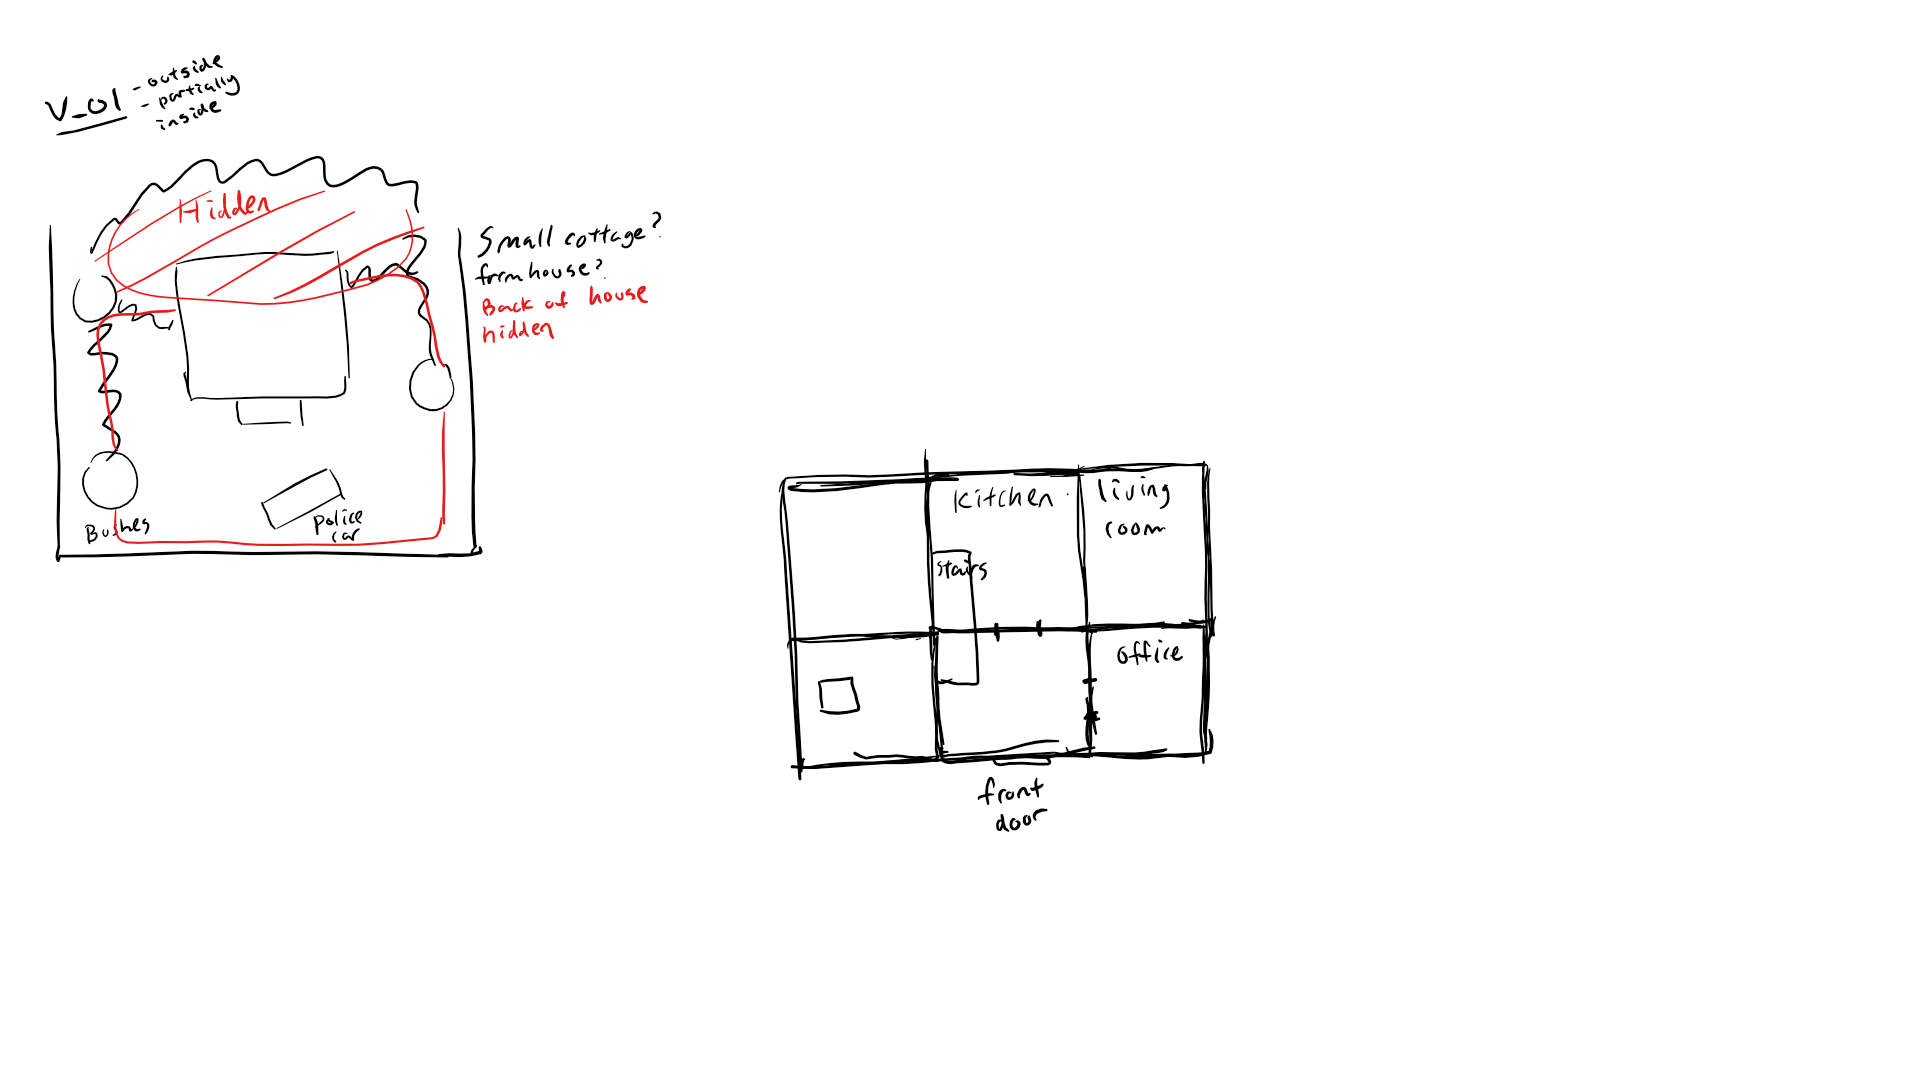 V_01
- outside
- partially
inside
Hidden
Small cottage?
farmhouse?
Back of house
hidden
Bushes
Police
car
Kitchen
living
room
stairs
office
front
door